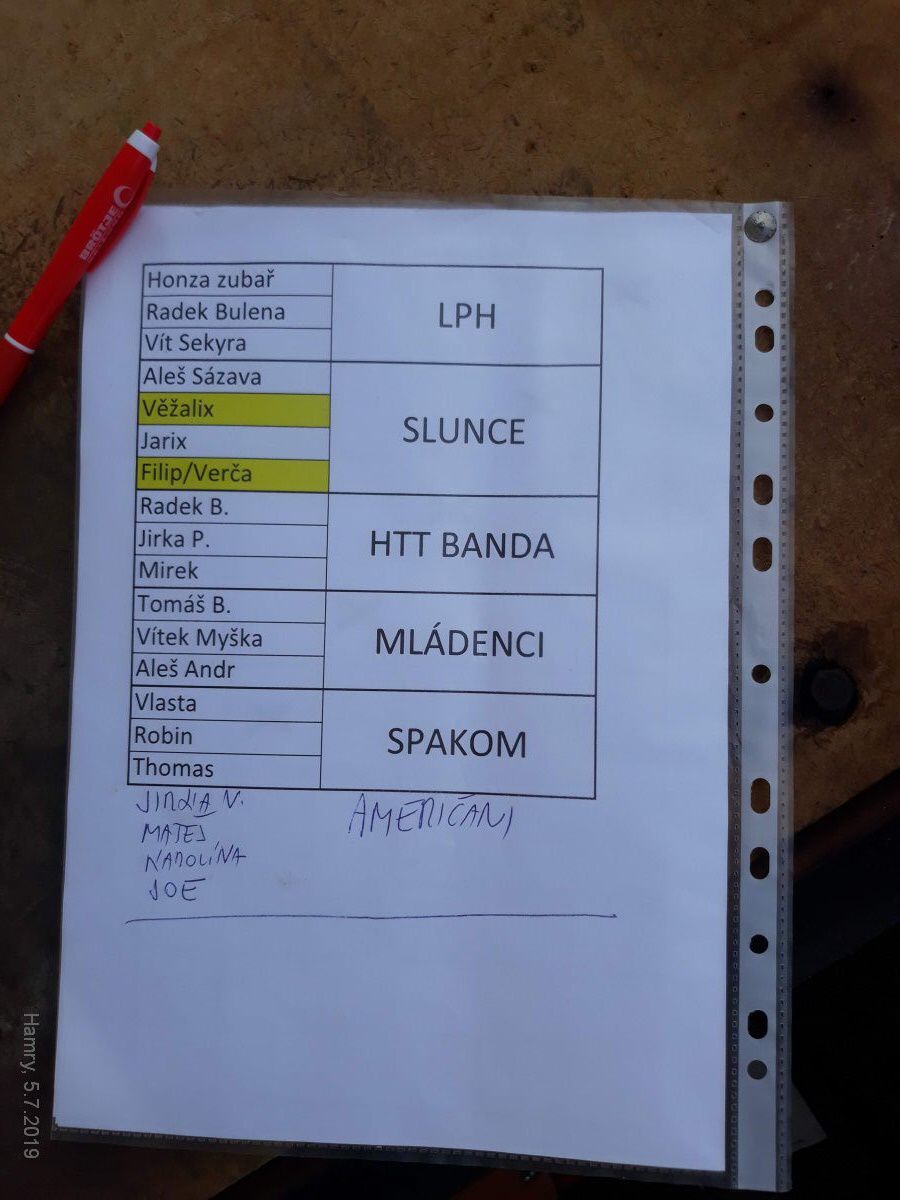 BRÖTJE
Honza zubař
Radek Bulena
Vít Sekyra
LPH
Aleš Sázava
Věžalix
Jarix
Filip/Verča
SLUNCE
Radek B.
Jirka P.
Mirek
HTT BANDA
Tomáš B.
Vítek Myška
Aleš Andr
MLÁDENCI
Vlasta
Robin
Thomas
SPAKOM
N.
MATEJ
KAROLÍNA
JOE
AMERIČANI
Hamry, 5.7.2019